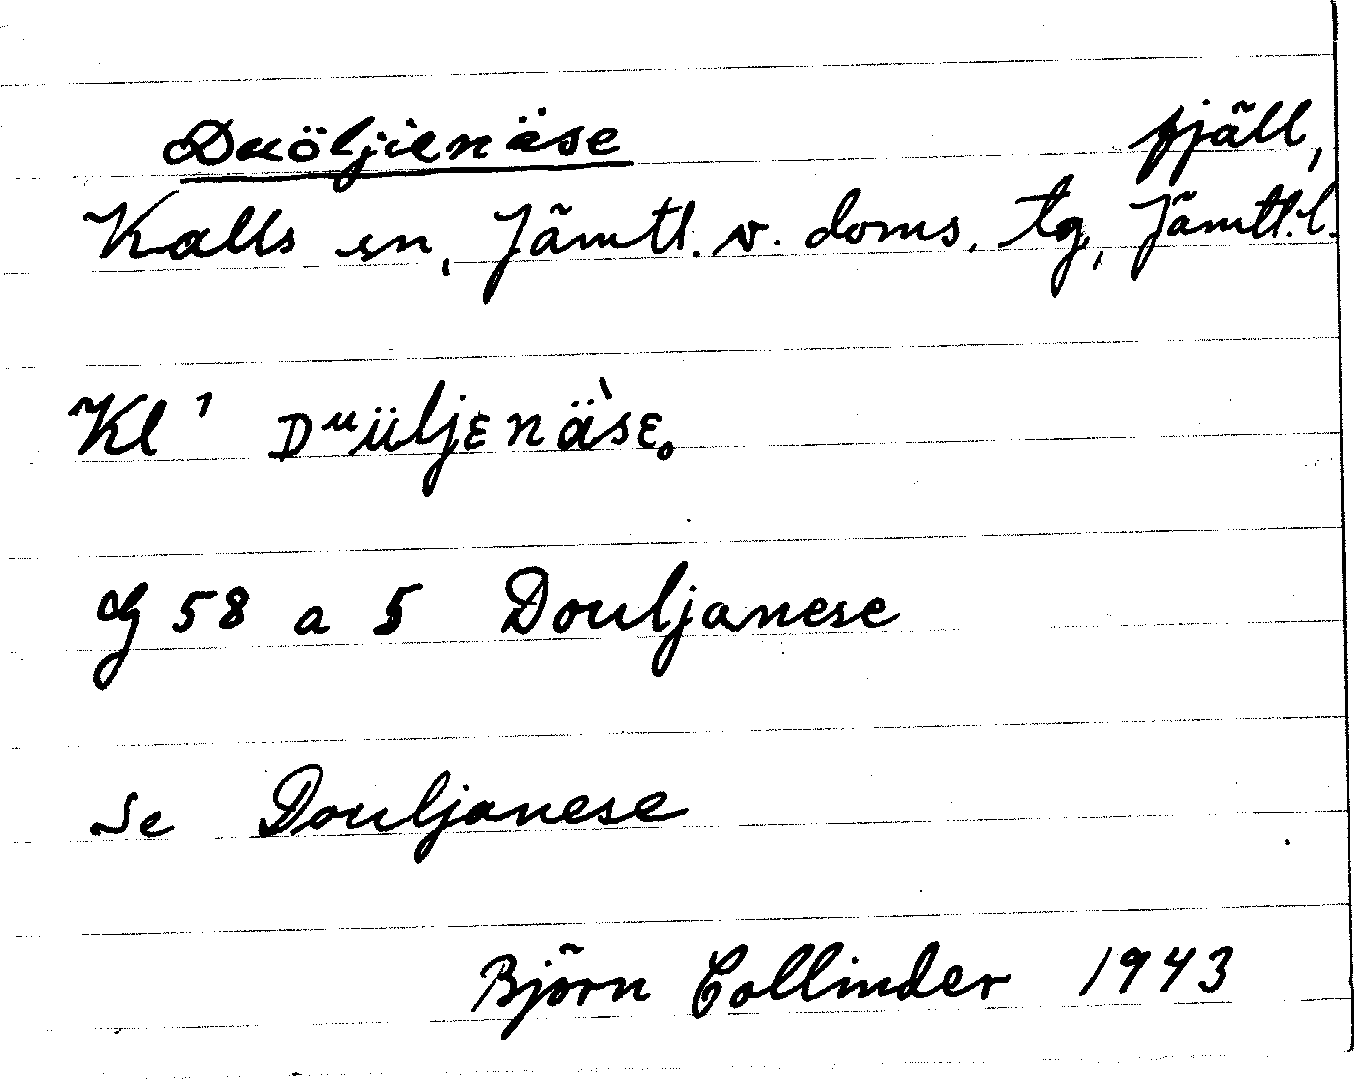 Duöljienäse fjäll,
Kalls sn, Jämtl. v. doms. tg, Jämtl. l.
Kl¹ Dᵘüljɛnä̀sɛ。
G 58 a 5 Douljanese
Se Douljanese
Björn Collinder 1943